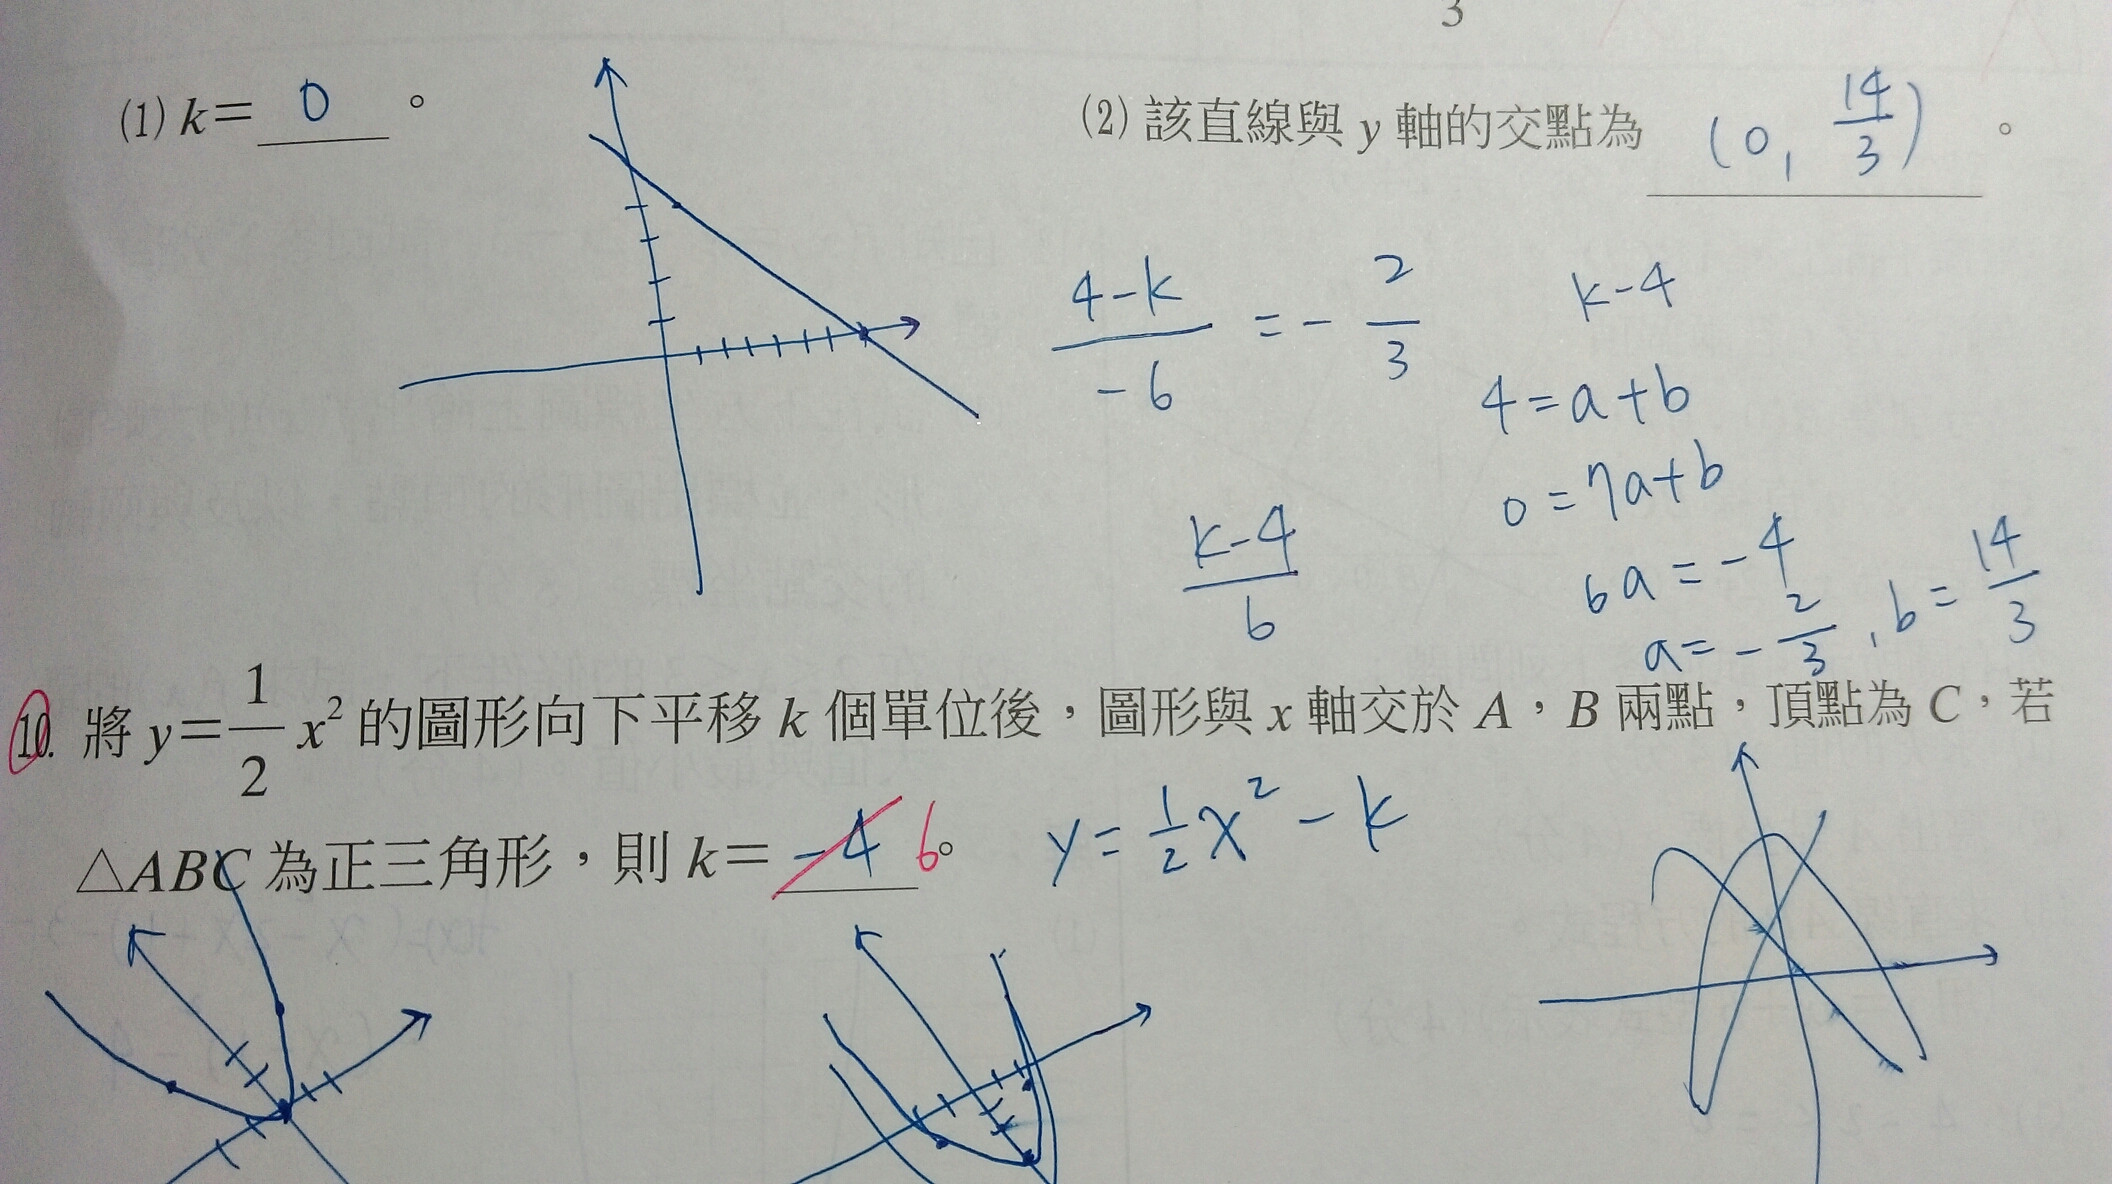 3
(1) k= 0 。
(2) 該直線與 y 軸的交點為 (0, 14/3) 。
(4-k)/(-6) = - 2/3
k-4
4=a+b
0=7a+b
(k-4)/6
6a=-4
a=-2/3, b=14/3
10. 將 y=1/2 x² 的圖形向下平移 k 個單位後,圖形與 x 軸交於 A,B 兩點,頂點為 C,若
△ABC 為正三角形,則 k= -4 6 。
y=1/2 x² - k